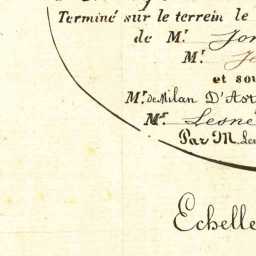 Terminé sur le terrein le
de Mr.
Mr.
et sou
Mr. de Milan D'Ast
Mr. Lesné
Par M. de
Echelle